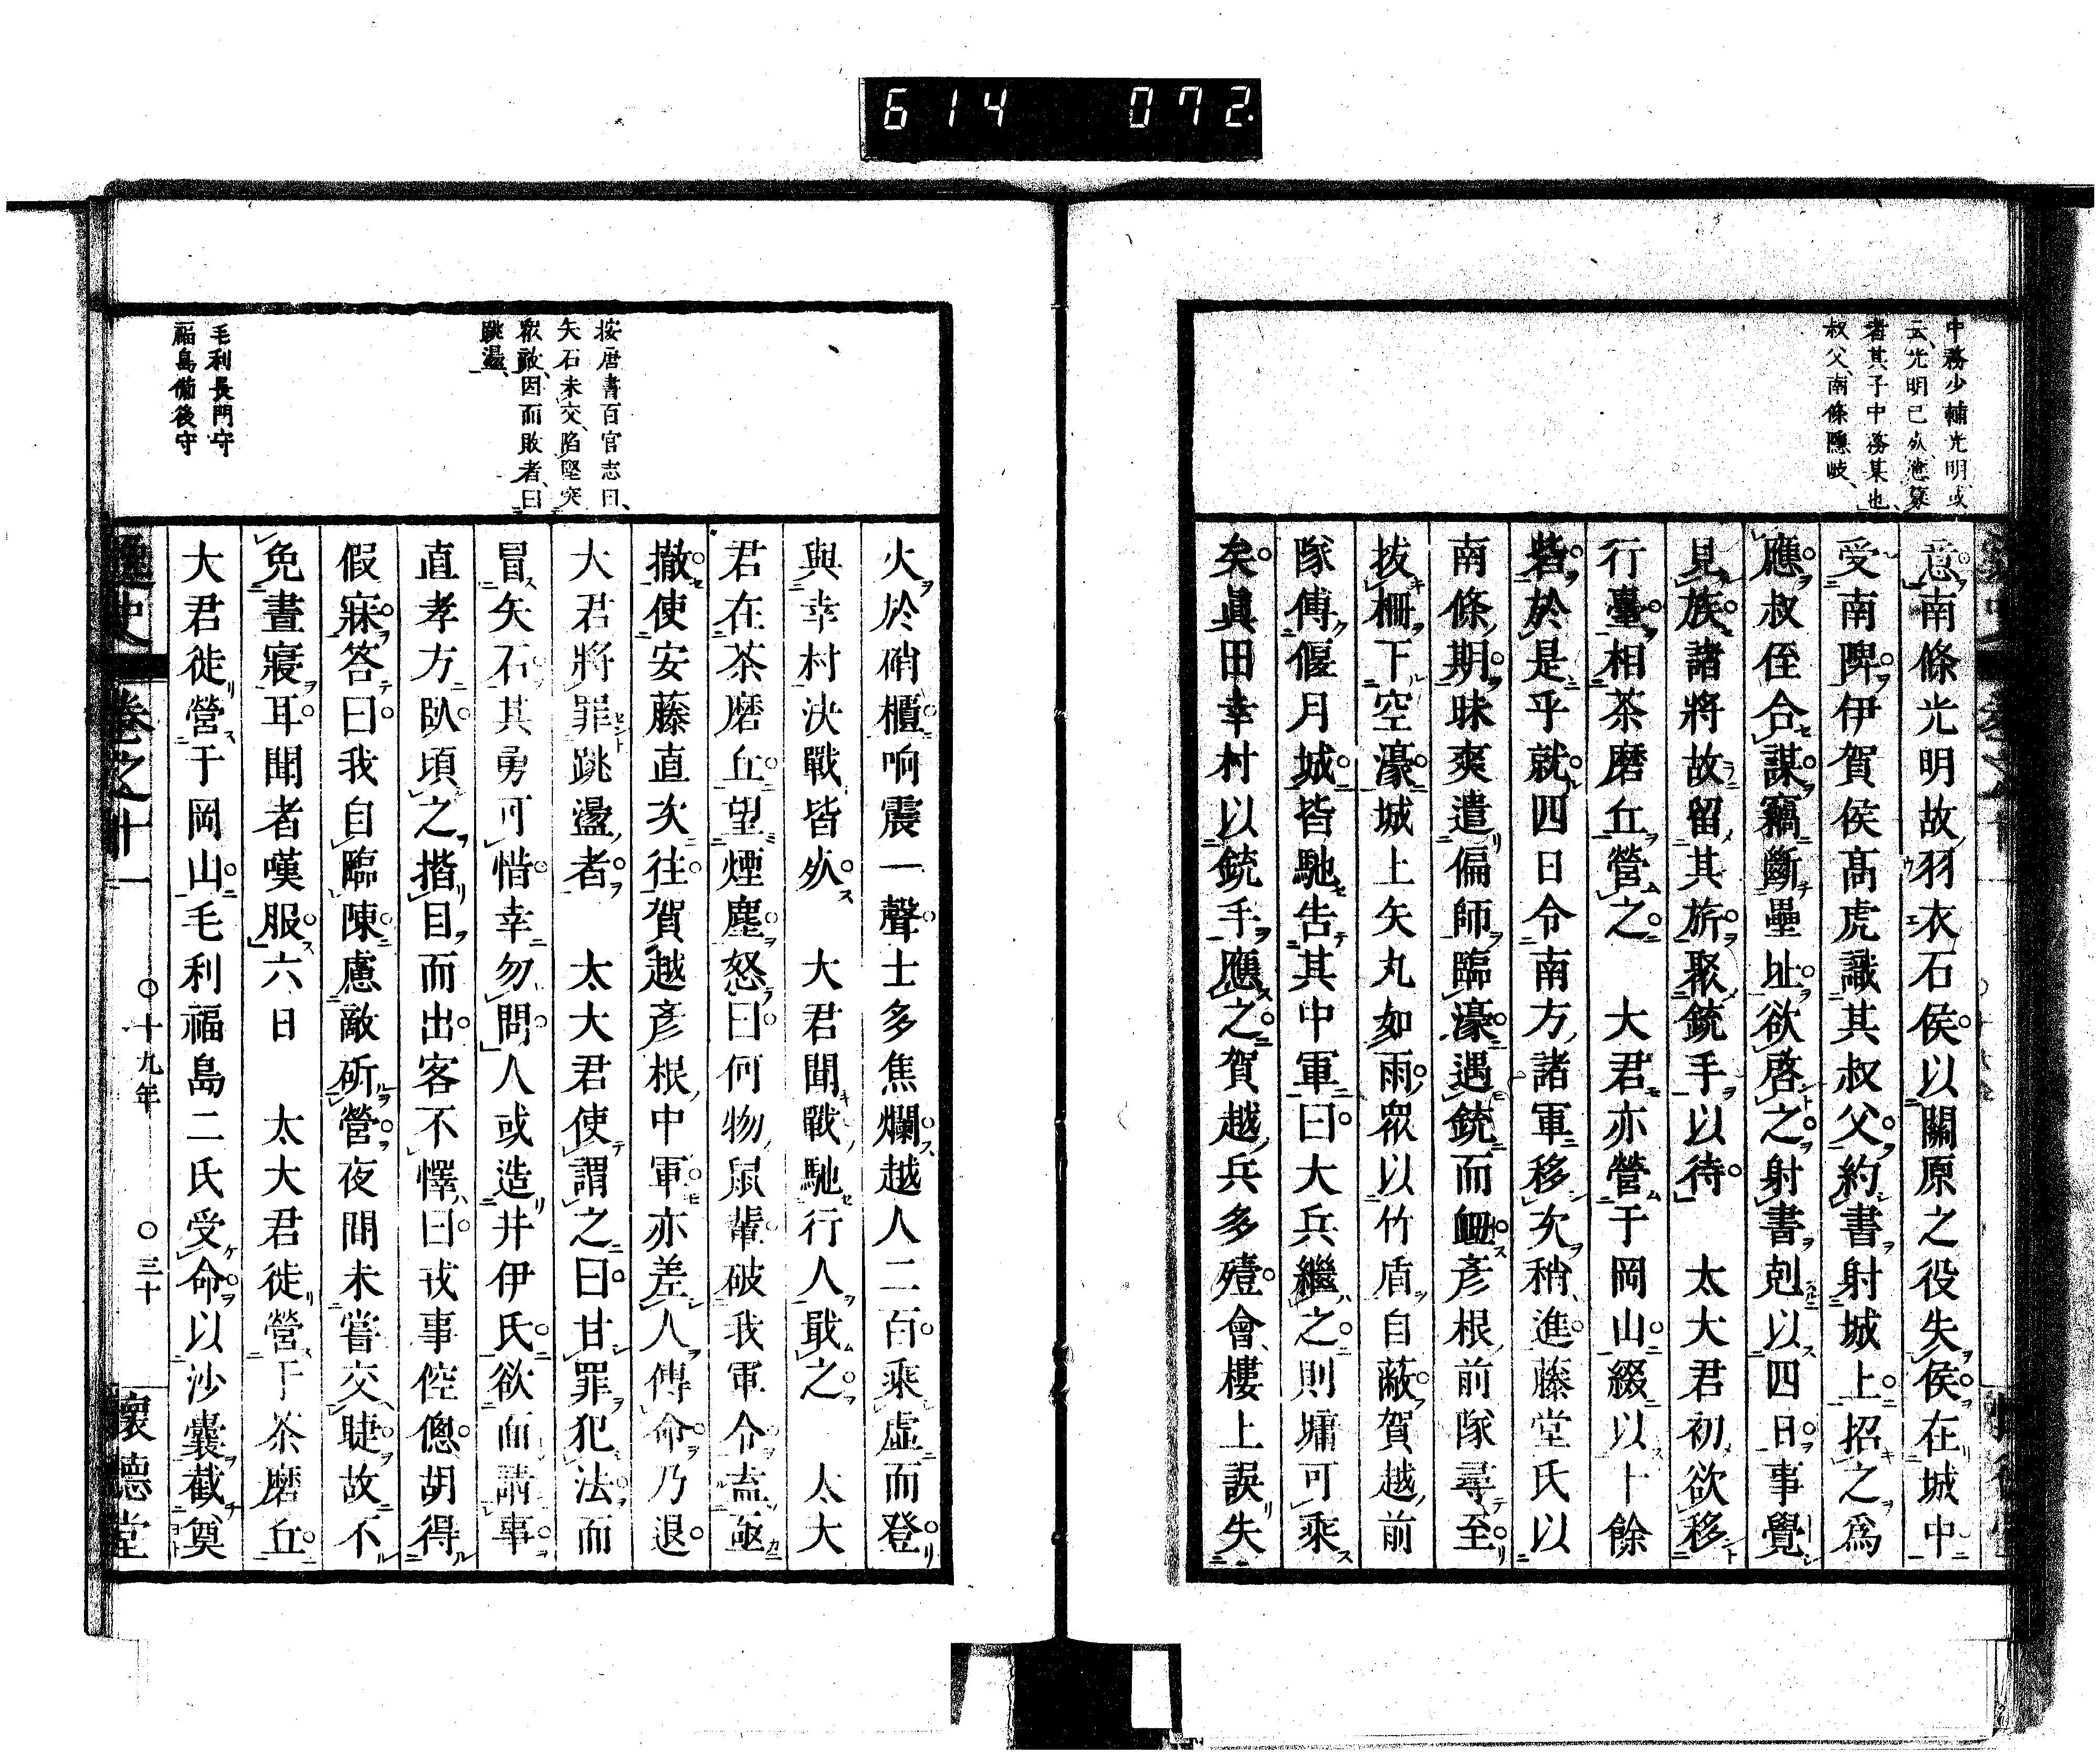 614 072
中務少輔光明或
云光明已死
者其子中務某也
叔父南條隱岐
意南條光明故羽衣石侯以關原之役失侯在城中
受南陴伊賀侯高虎識其叔父約書射城上招之爲
應叔侄合謀竊斷壘址欲啓之射書剋以四日事覺
見族諸將故留其旂聚銃手以待 太大君初欲移
行臺相茶磨丘營之 大君亦營于岡山綴以十餘
砦於是乎就四日令南方諸軍移次稍進藤堂氏以
南條期昧爽遣偏師臨濠遇銃而衂彥根前隊尋至
拔柵下空濠城上矢丸如雨眾以竹盾自蔽賀越前
隊傅偃月城皆馳告其中軍曰大兵繼之則墉可乘
矣眞田幸村以銃手應之賀越兵多殪會樓上誤失
按唐書百官志曰
矢石未交陷堅突
眾敵因而敗者曰
跳盪
毛利長門守
福島備後守
火於硝櫃响震一聲士多焦爛越人二百乘虛而登
與幸村決戰皆死 大君聞戰馳行人戢之 太大
君在茶磨丘望煙塵怒曰何物鼠輩破我軍令盍亟
撤使安藤直次往賀越彥根中軍亦差人傳命乃退
大君將罪跳盪者 太大君使謂之曰甘罪犯法而
冒矢石其勇可惜幸勿問人或造井伊氏欲面請事
直孝方臥頃之揩目而出客不懌曰戎事倥傯胡得
假寐答曰我自臨陳慮敵斫營夜間未嘗交睫故不
免晝寢耳聞者嘆服六日 太大君徙營于茶磨丘
大君徙營于岡山毛利福島二氏受命以沙囊截奠
逸史 卷之十一 ○十九年 ○三十 懷德堂